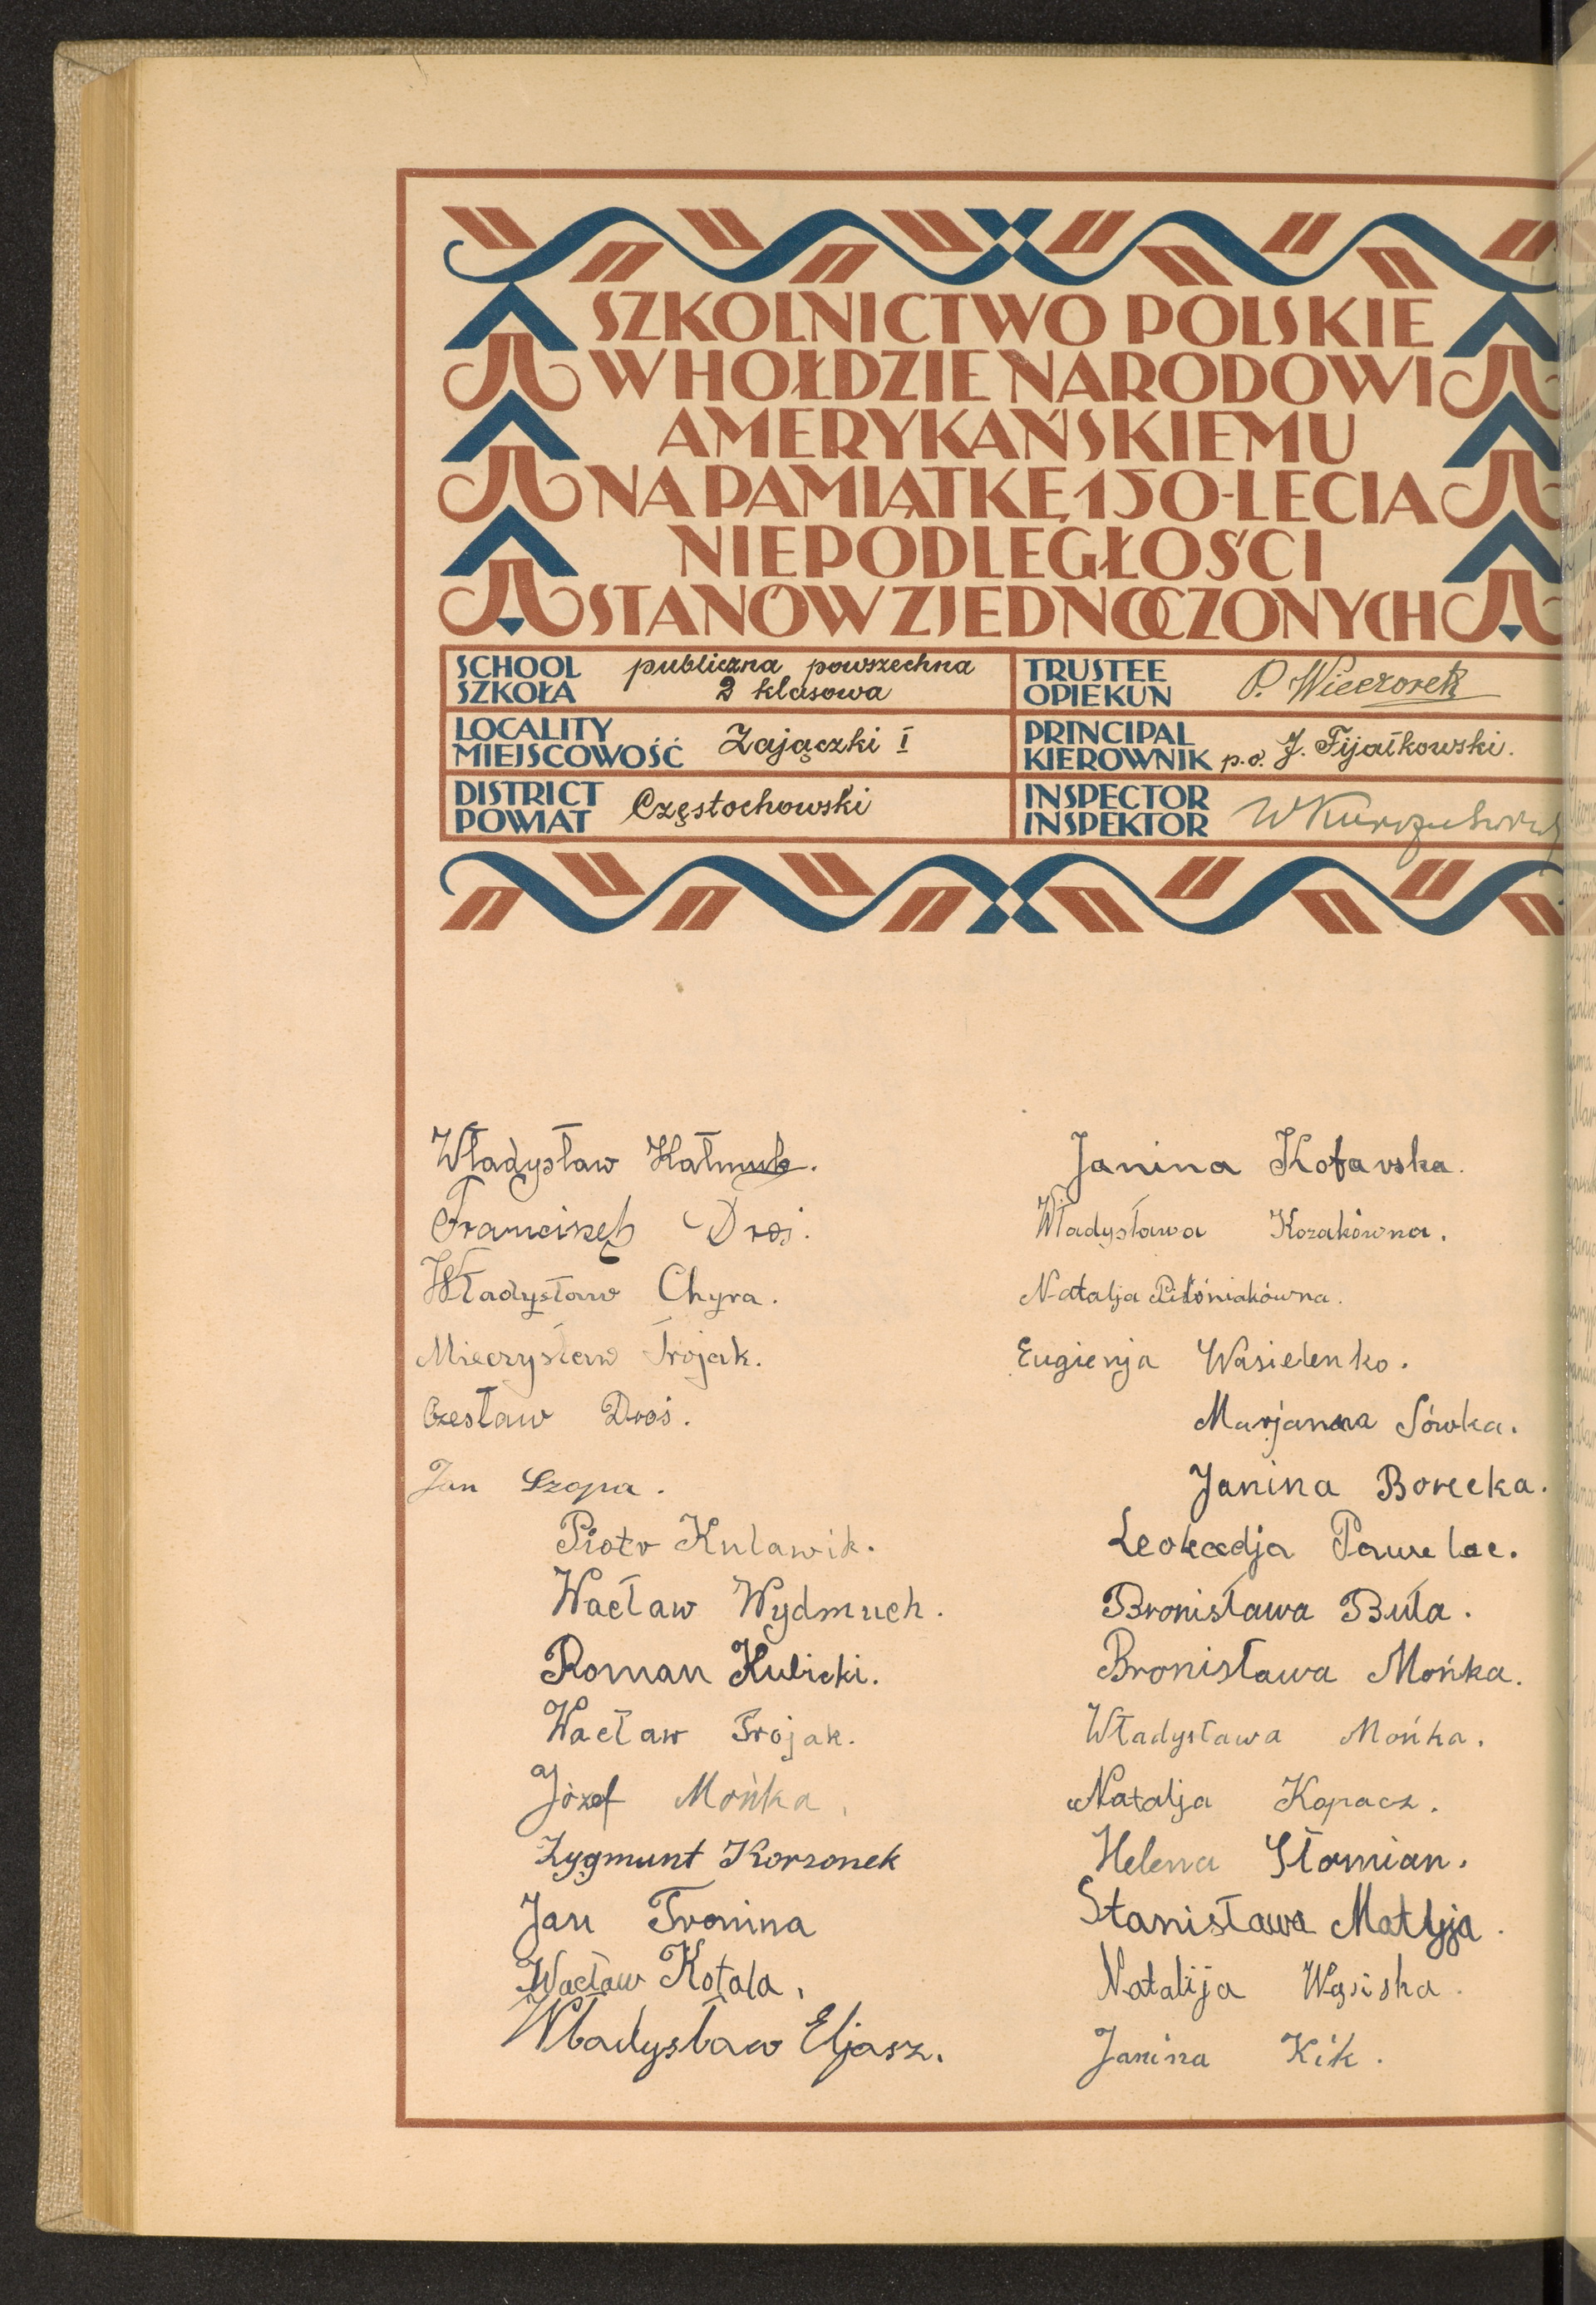 SZKOLNICTWO POLSKIE
W HOŁDZIE NARODOWI
AMERYKAŃSKIEMU
NA PAMIĄTKĘ 150-LECIA
NIEPODLEGŁOŚCI
STANÓW ZJEDNOCZONYCH
SCHOOL
SZKOŁA
publiczna powszechna
2 klasowa
TRUSTEE
OPIEKUN
P. Wieczorek
LOCALITY
MIEJSCOWOŚĆ
Zajączki I
PRINCIPAL
KIEROWNIK
p.o. J. Fijałkowski.
DISTRICT
POWIAT
Częstochowski
INSPECTOR
INSPEKTOR
Władysław Kałmuk.
Franciszek Droś.
Władysław Chyra.
Mieczysław Trojak.
Czesław Droś.
Jan Szopa.
Piotr Kulawik.
Wacław Wydmuch.
Roman Kubicki.
Wacław Trojak.
Józef Mońka,
Zygmunt Korzonek
Jan Tronina
Wacław Kotala,
Władysław Eljasz.
Janina
Władysława Kozakówna.
Natalja
Eugienja Wasielenko.
Marjanna Sówka.
Janina Borecka.
Leokadja Pawelec.
Bronisława Buła.
Bronisława Mońka.
Władysława Mońka.
Natalja Kopacz.
Helena Słomian.
Stanisława Matyja.
Natalija Wąsiska.
Janina Kik.